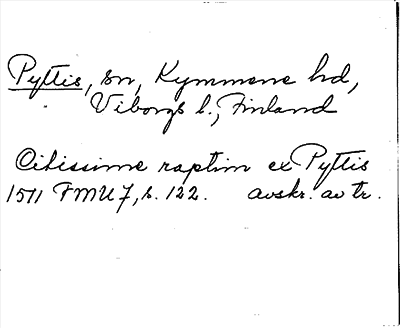 Pyttis, sn, Kymmene hd,
Viborgs l., Finland
Citissime raptim ex Pyttis
1511 FMU 7, s. 122. avskr. av tr.